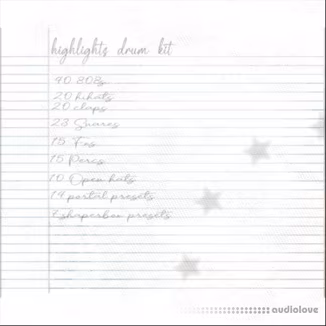 highlights drum kit
40 808s
20 hihats
20 claps
23 Snares
15 Fxs
15 Percs
10 Open hats
14 portal presets
7 shaperbox presets
audiolove